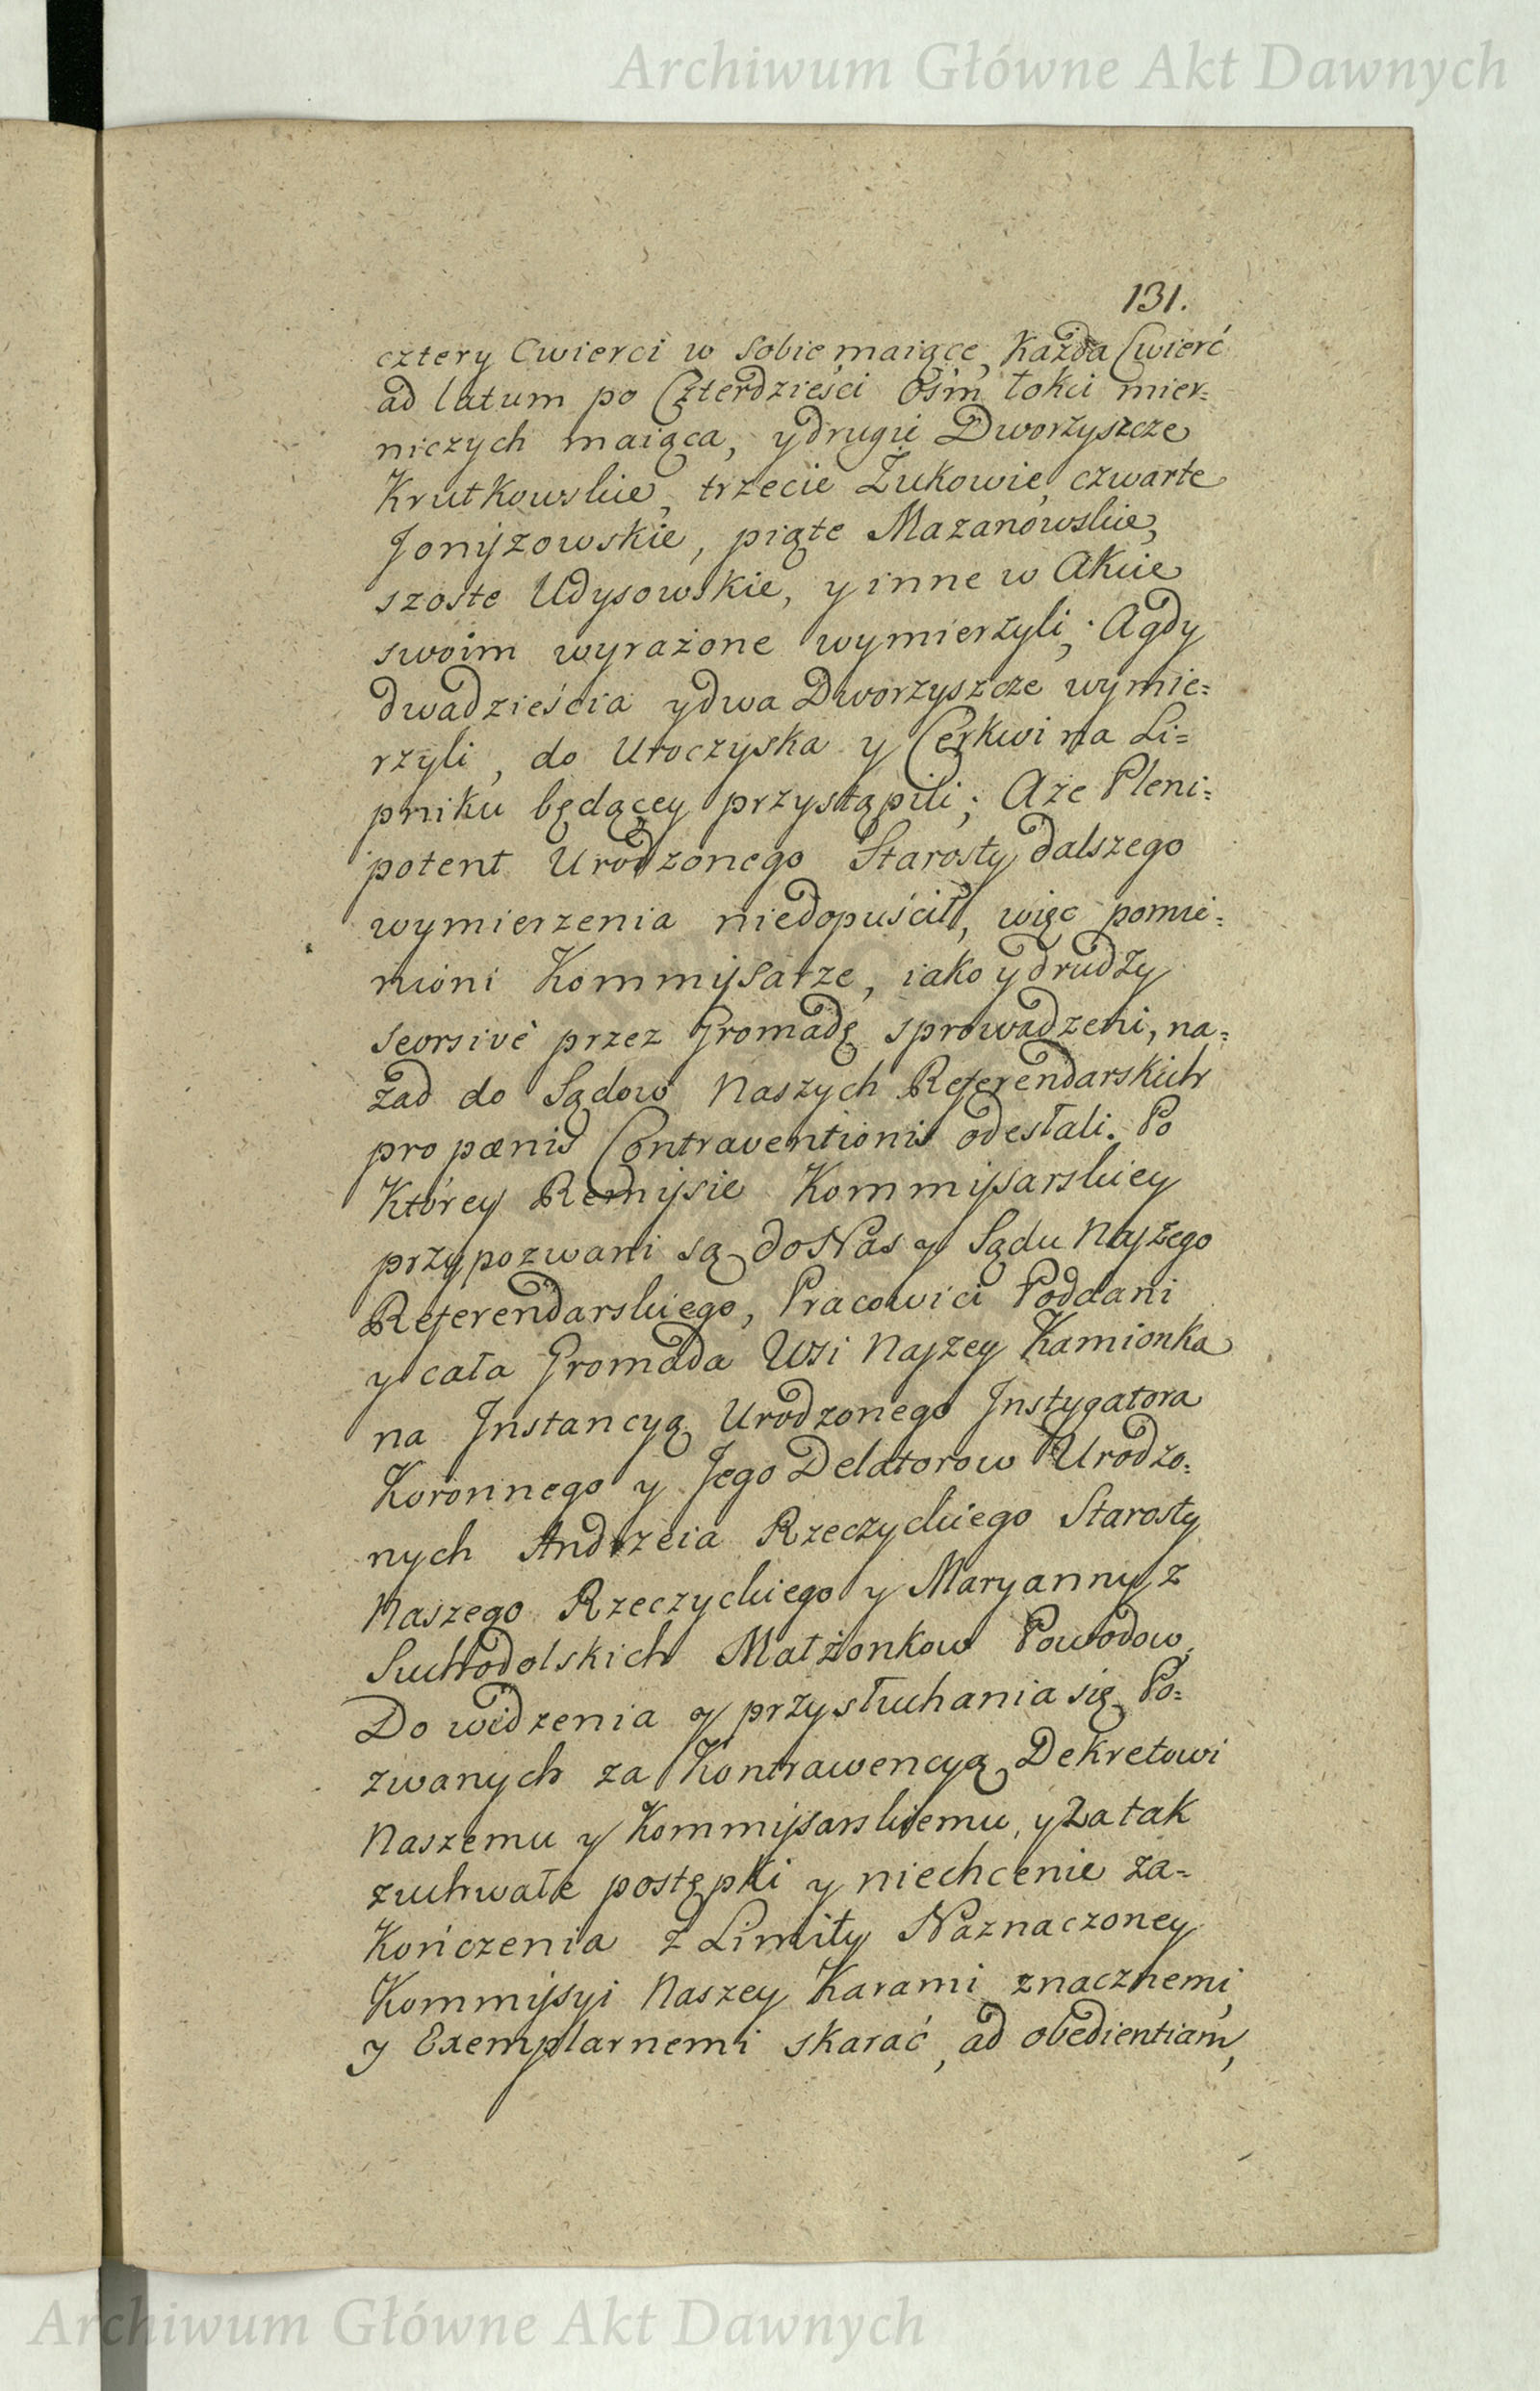 Archiwum Główne Akt Dawnych
131.
cztery Cwierci w sobie maiące, Każda Cwierć
ad latum po Czterdzieści Ośm łokci mier=
niczych maiąca, y drugie Dworzyszcze
Krutkowskie, trzecie Żukowie, czwarte
Jonijzowskie, piąte Mazanowskie,
szoste Udysowskie, y inne w Akcie
swoim wyrażone wymierzyli; A gdy
dwadzieścia y dwa Dworzyszcze wymie=
rzyli, do Uroczyska y Cerkwi na Li=
pniku będącey przystąpili; A że Pleni=
potent Urodzonego Starosty dalszego
wymierzenia niedopuścił, więc pomie=
nioni Kommijsarze, iako y drudzy
seorsivè przez Gromadę sprowadzeni, na=
zad do Sądow Naszych Referendarskich
pro pœnis Contraventionis odesłali. Po
Ktorey Remijsie Kommijsarskiey
przypozwani są do Nas y Sądu Najzego
Referendarskiego, Pracowici Poddani
y cała Gromada Wsi Najzey Kamionka
na Instancyą Urodzonego Instygatora
Koronnego y Jego Delatorow Urodzo=
nych Andrzeia Rzeczyckiego Starosty
Naszego Rzeczyckiego y Maryanny z
Suchodolskich Małżonkow Powodow,
Do widzenia y przysłuchania się Po=
zwanych za Kontrawencyą Dekretowi
Naszemu y Kommijsarskiemu, y Za tak
zuchwałe postępki y niechcenie za=
Kończenia z Limity Naznaczoney
Kommijsyi Naszey Karami znacznemi
y Exemplarnemi skarać, ad obedientiam,
Archiwum Główne Akt Dawnych